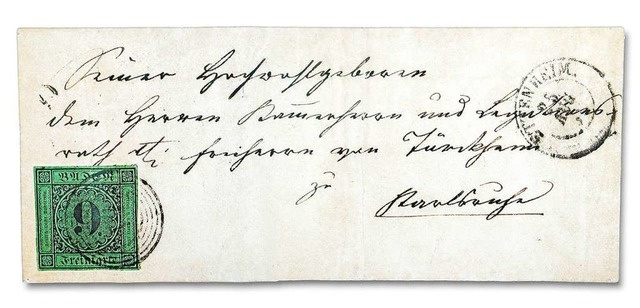 Seiner Hochwohlgeboren
dem Herren Kammerherrn und Legations
rath Freiherrn von Türckheim
zu
Karlsruhe
ETTENHEIM.
BADEN
9
Freimarke